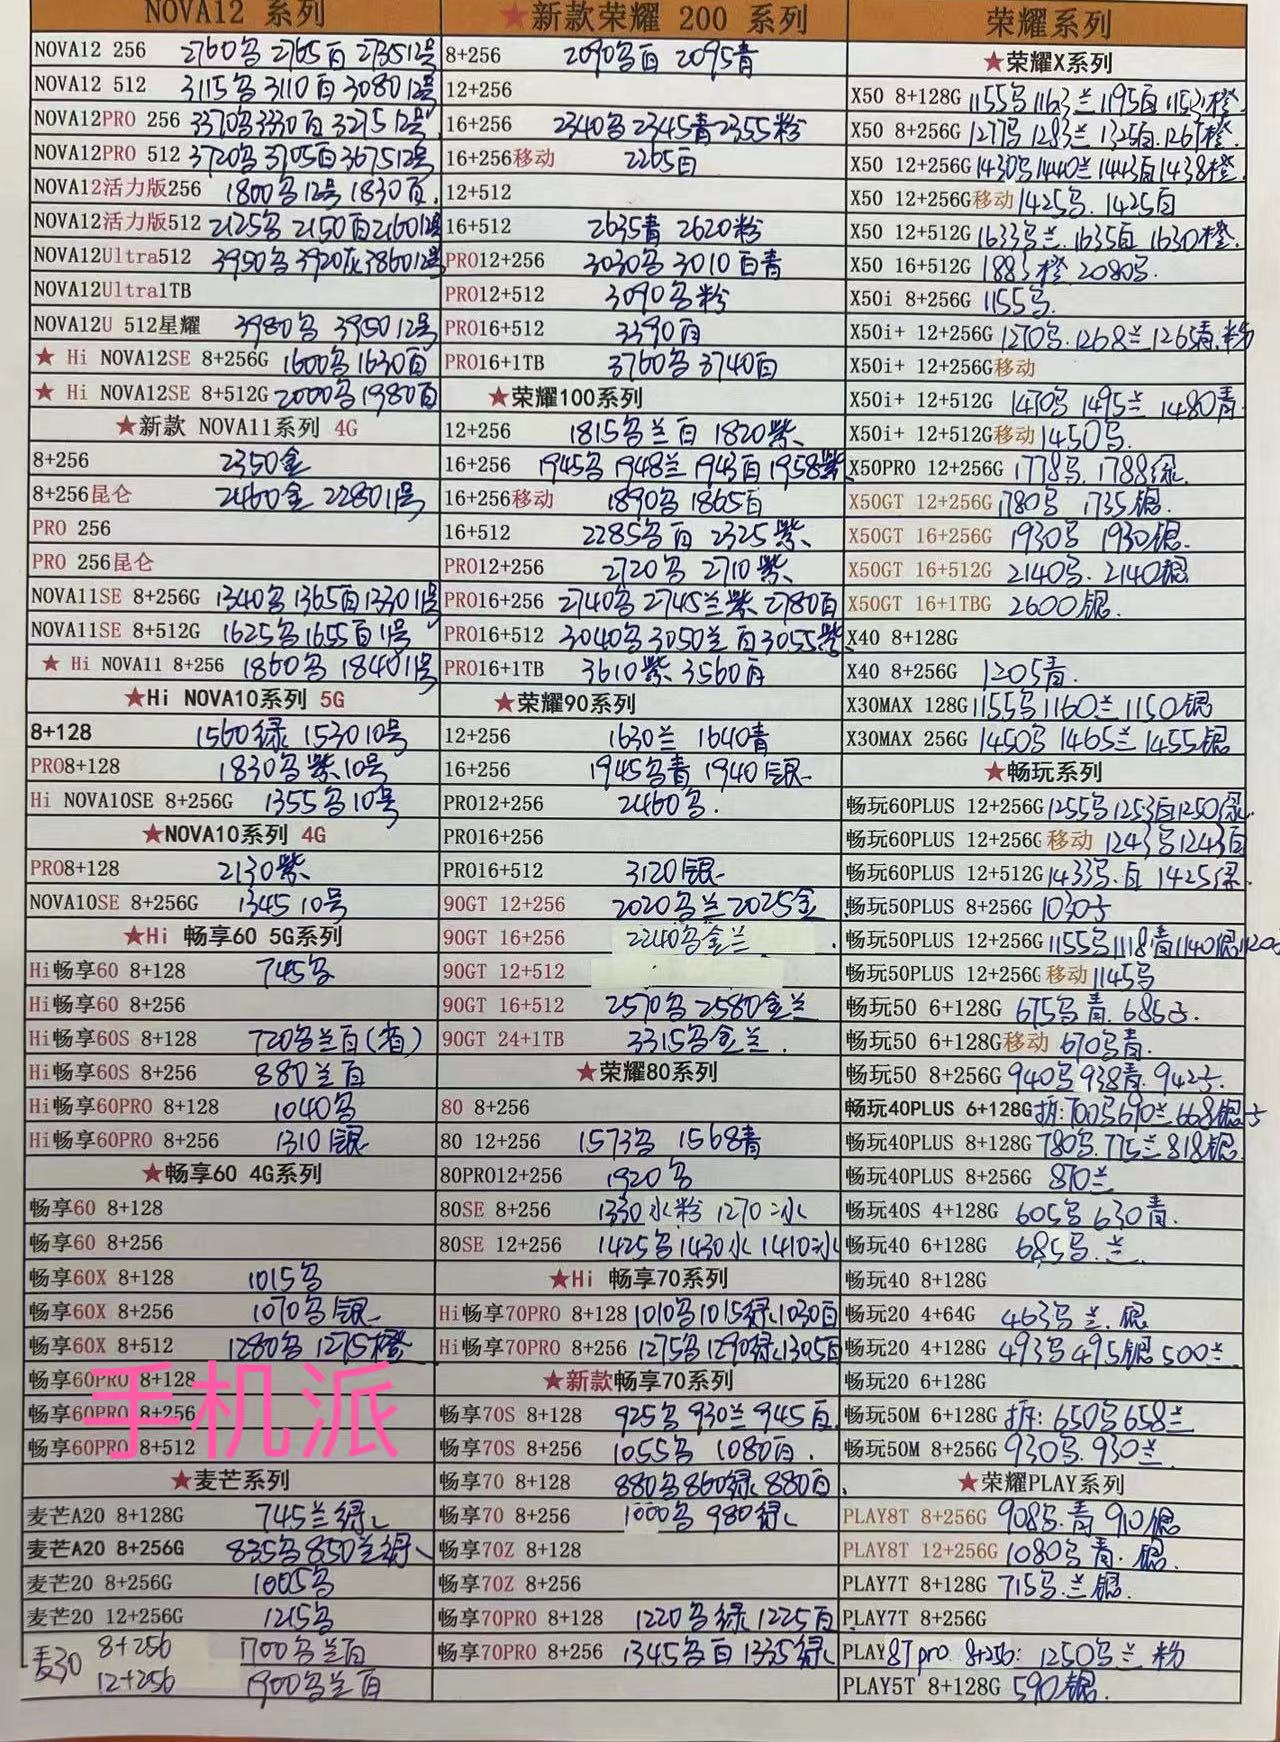 NOVA12 系列
NOVA12 256 2760马 2765百 273512号
NOVA12 512 3115马 3110百 308012号
NOVA12PRO 256 3370马3330百 327512号
NOVA12PRO 512 3720马3705百367512号
NOVA12活力版256 1800马12号 1830百.
NOVA12活力版512 2125马 2150百216012号
NOVA12Ultra512 3950马 3920灰386012号
NOVA12Ultra1TB
NOVA12U 512星耀 3980马 395012号
★ Hi NOVA12SE 8+256G 1600马1630百
★ Hi NOVA12SE 8+512G 2000马1980百
★新款 NOVA11系列 4G
8+256 2350金
8+256昆仑 2460金 228011号
PRO 256
PRO 256昆仑
NOVA11SE 8+256G 1340马1365百133011号
NOVA11SE 8+512G 1625马1655百11号
★ Hi NOVA11 8+256 1860马 184011号
★Hi NOVA10系列 5G
8+128 1560绿 153010号
PRO8+128 1830马紫10号
Hi NOVA10SE 8+256G 1355马10号
★NOVA10系列 4G
PRO8+128 2130紫
NOVA10SE 8+256G 134510号
★Hi 畅享60 5G系列
Hi畅享60 8+128 745马
Hi畅享60 8+256
Hi畅享60S 8+128 720马兰百(省)
Hi畅享60S 8+256 880兰百
Hi畅享60PRO 8+128 1040马
Hi畅享60PRO 8+256 1310银
★畅享60 4G系列
畅享60 8+128
畅享60 8+256
畅享60X 8+128 1015马
畅享60X 8+256 1070马银
畅享60X 8+512 1280马 1275橙
畅享60PRO 8+128
畅享60PRO 8+256
畅享60PRO 8+512
手机派
★麦芒系列
麦芒A20 8+128G 745兰绿
麦芒A20 8+256G 835马850兰绿
麦芒20 8+256G 1005马
麦芒20 12+256G 1215马
麦30 8+256 1700马兰百
12+256 1900马兰百
★新款荣耀 200 系列
8+256 2090马百 2095青
12+256
16+256 2340马2345青2355粉
16+256移动 2265百
12+512
16+512 2635青 2620粉
PRO12+256 3030马 3010百青
PRO12+512 3090马粉
PRO16+512 3390百
PRO16+1TB 3760马3740百
★荣耀100系列
12+256 1815马兰百 1820紫
16+256 1945马 1948兰 1943百1958紫
16+256移动 1890马1865百
16+512 2285马百 2325紫
PRO12+256 2720马 2710紫
PRO16+256 2740马2745兰紫 2780百
PRO16+512 3040马3050兰百3055紫
PRO16+1TB 3610紫 3560百
★荣耀90系列
12+256 1630兰 1640青
16+256 1945马青 1940银
PRO12+256 2460马.
PRO16+256
PRO16+512 3120银
90GT 12+256 2020马兰2025金
90GT 16+256 2240马金兰
90GT 12+512
90GT 16+512 2570马 2580金兰
90GT 24+1TB 3315马金兰.
★荣耀80系列
80 8+256
80 12+256 1573马 1568青
80PRO12+256 1920马
80SE 8+256 1330水粉 1270冰
80SE 12+256 1425马1430水 1410冰
★Hi 畅享70系列
Hi畅享70PRO 8+128 1010马1015绿1030百
Hi畅享70PRO 8+256 1275马1290绿1305百
★新款畅享70系列
畅享70S 8+128 925马 930兰 945百
畅享70S 8+256 1055马 1080百.
畅享70 8+128 880马860绿 880百
畅享70 8+256 1000马 980绿
畅享70Z 8+128
畅享70Z 8+256
畅享70PRO 8+128 1220马绿 1225百
畅享70PRO 8+256 1345马百 1335绿
荣耀系列
★荣耀X系列
X50 8+128G 1155马1163兰1195百 橙
X50 8+256G 1277马 1283兰 1325百.1267橙
X50 12+256G1430马1440兰1443百1438橙
X50 12+256G移动1425马. 1425百
X50 12+512G 1633马兰.1635百 1630橙.
X50 16+512G 橙 2080马.
X50i 8+256G 1155马.
X50i+ 12+256G 1270马.1268兰1265青.粉
X50i+ 12+256G移动
X50i+ 12+512G 1470马 1495兰 1480青
X50i+ 12+512G移动1450马.
X50PRO 12+256G 1778马.1788绿.
X50GT 12+256G 1780马 1735银.
X50GT 16+256G 1930马 1930银.
X50GT 16+512G 2140马. 2140银
X50GT 16+1TBG 2600银.
X40 8+128G
X40 8+256G 1205青.
X30MAX 128G1155马1160兰1150银
X30MAX 256G 1450马 1465兰 1455银
★畅玩系列
畅玩60PLUS 12+256G1255马1253百1250绿.
畅玩60PLUS 12+256G 移动 1243马1243百
畅玩60PLUS 12+512G1433马.百 1425绿.
畅玩50PLUS 8+256G 1030
畅玩50PLUS 12+256G1155马1118青1140银
畅玩50PLUS 12+256G 移动1145马
畅玩50 6+128G 675马青. 685
畅玩50 6+128G移动 670马青.
畅玩50 8+256G 940马938青. 942
畅玩40PLUS 6+128G拆:700马690兰668银
畅玩40PLUS 8+128G 780马.775兰818银
畅玩40PLUS 8+256G 870兰
畅玩40S 4+128G 605马630青.
畅玩40 6+128G 685马.兰
畅玩40 8+128G
畅玩20 4+64G 463马兰.银
畅玩20 4+128G 493马495银500兰
畅玩20 6+128G
畅玩50M 6+128G 拆: 650马658兰
畅玩50M 8+256G 930马.930兰
★荣耀PLAY系列
PLAY8T 8+256G 908马.青 910银
PLAY8T 12+256G 1080马青. 银.
PLAY7T 8+128G 715马.兰银.
PLAY7T 8+256G
PLAY8Tpro 8+256: 1250马兰 粉
PLAY5T 8+128G 590银.